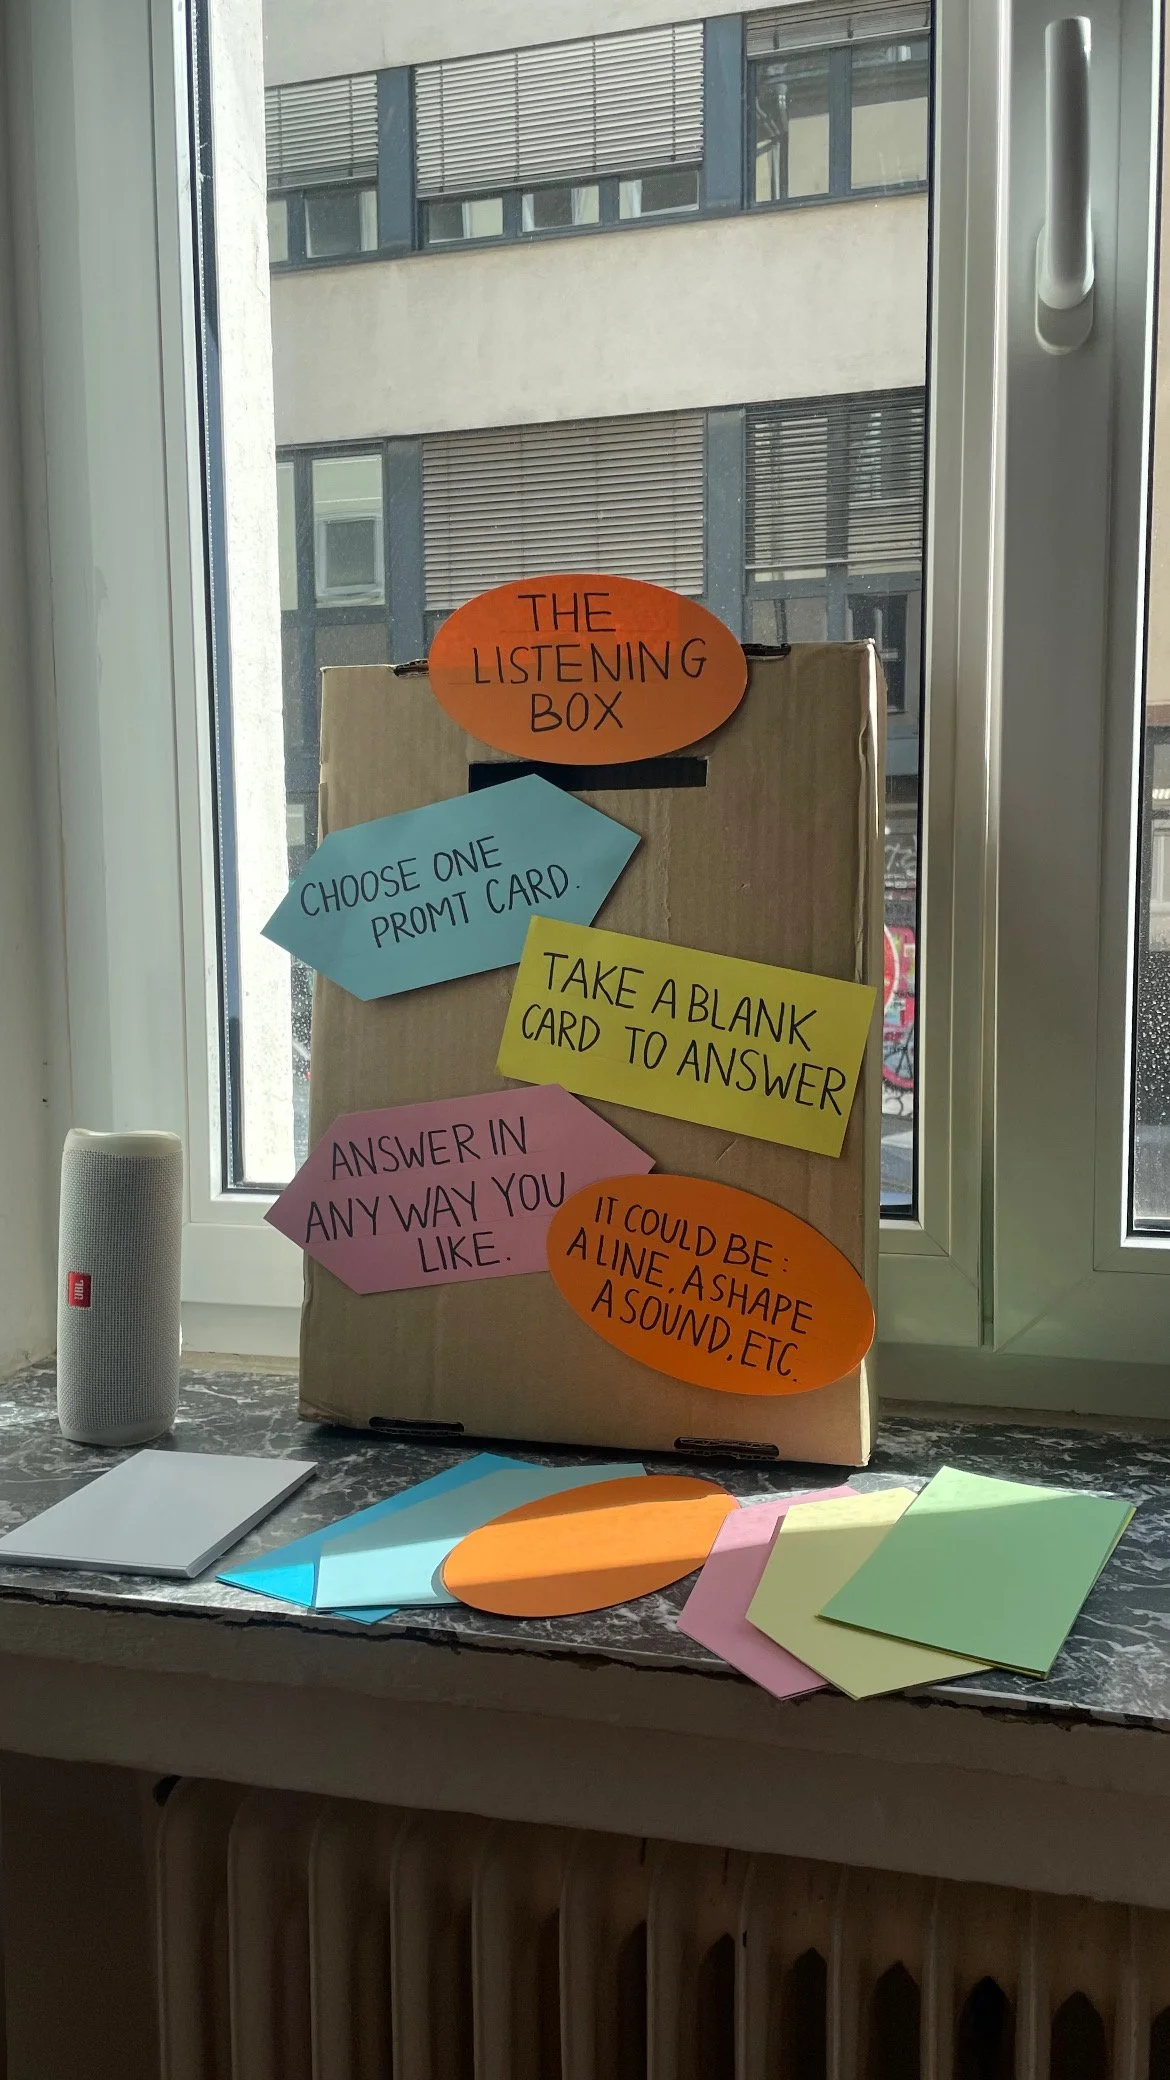 THE
LISTENING
BOX
CHOOSE ONE
PROMT CARD.
TAKE A BLANK
CARD TO ANSWER
ANSWER IN
ANY WAY YOU
LIKE.
IT COULD BE:
A LINE, A SHAPE
A SOUND, ETC.
JBL